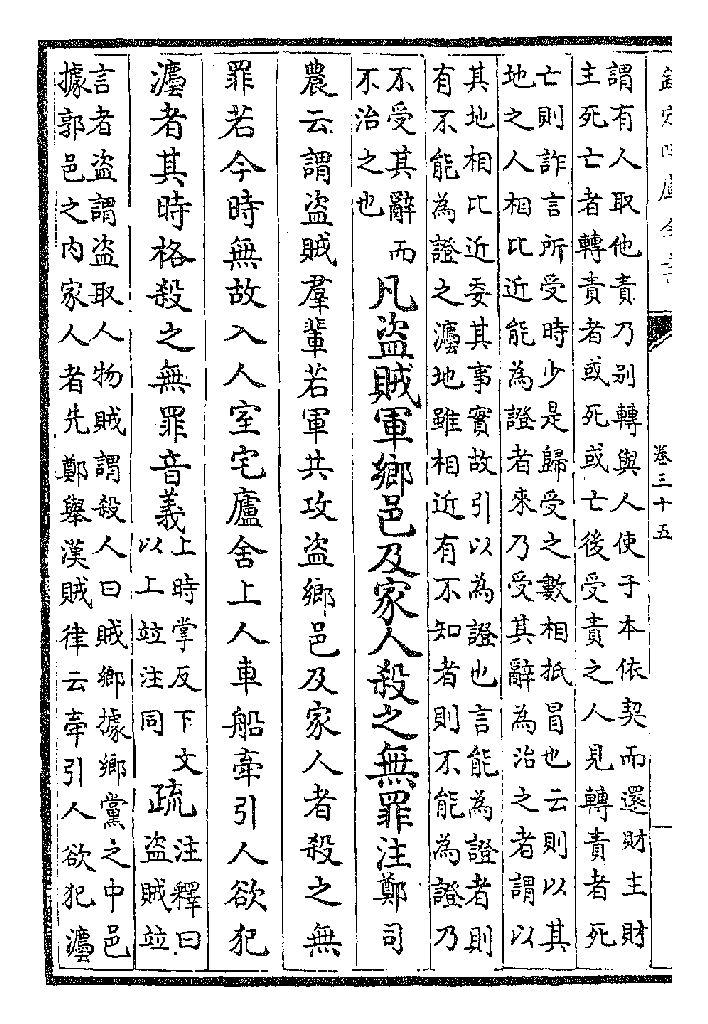 欽定四庫全書
卷三十五
謂有人取他責乃别轉與人使于本依契而還財主財
主死亡者轉責者或死或亡後受責之人見轉責者死
亡則詐言所受時少是歸受之數相抵冒也云則以其
地之人相比近能為證者來乃受其辭為治之者謂以
其地相比近委其事實故引以為證也言能為證者則
有不能為證之灋地雖相近有不知者則不能為證乃
不受其辭而
不治之也
凡盜賊軍鄉邑及家人殺之無罪注鄭司
農云謂盜賊羣輩若軍共攻盜鄉邑及家人者殺之無
罪若今時無故入人室宅廬舍上人車船牽引人欲犯
灋者其時格殺之無罪音義
上時掌反下文
以上竝注同
疏
注釋曰
盜賊竝
言者盜謂盜取人物賊謂殺人曰賊鄉據鄉黨之中邑
據郭邑之内家人者先鄭舉漢賊律云牽引人欲犯灋